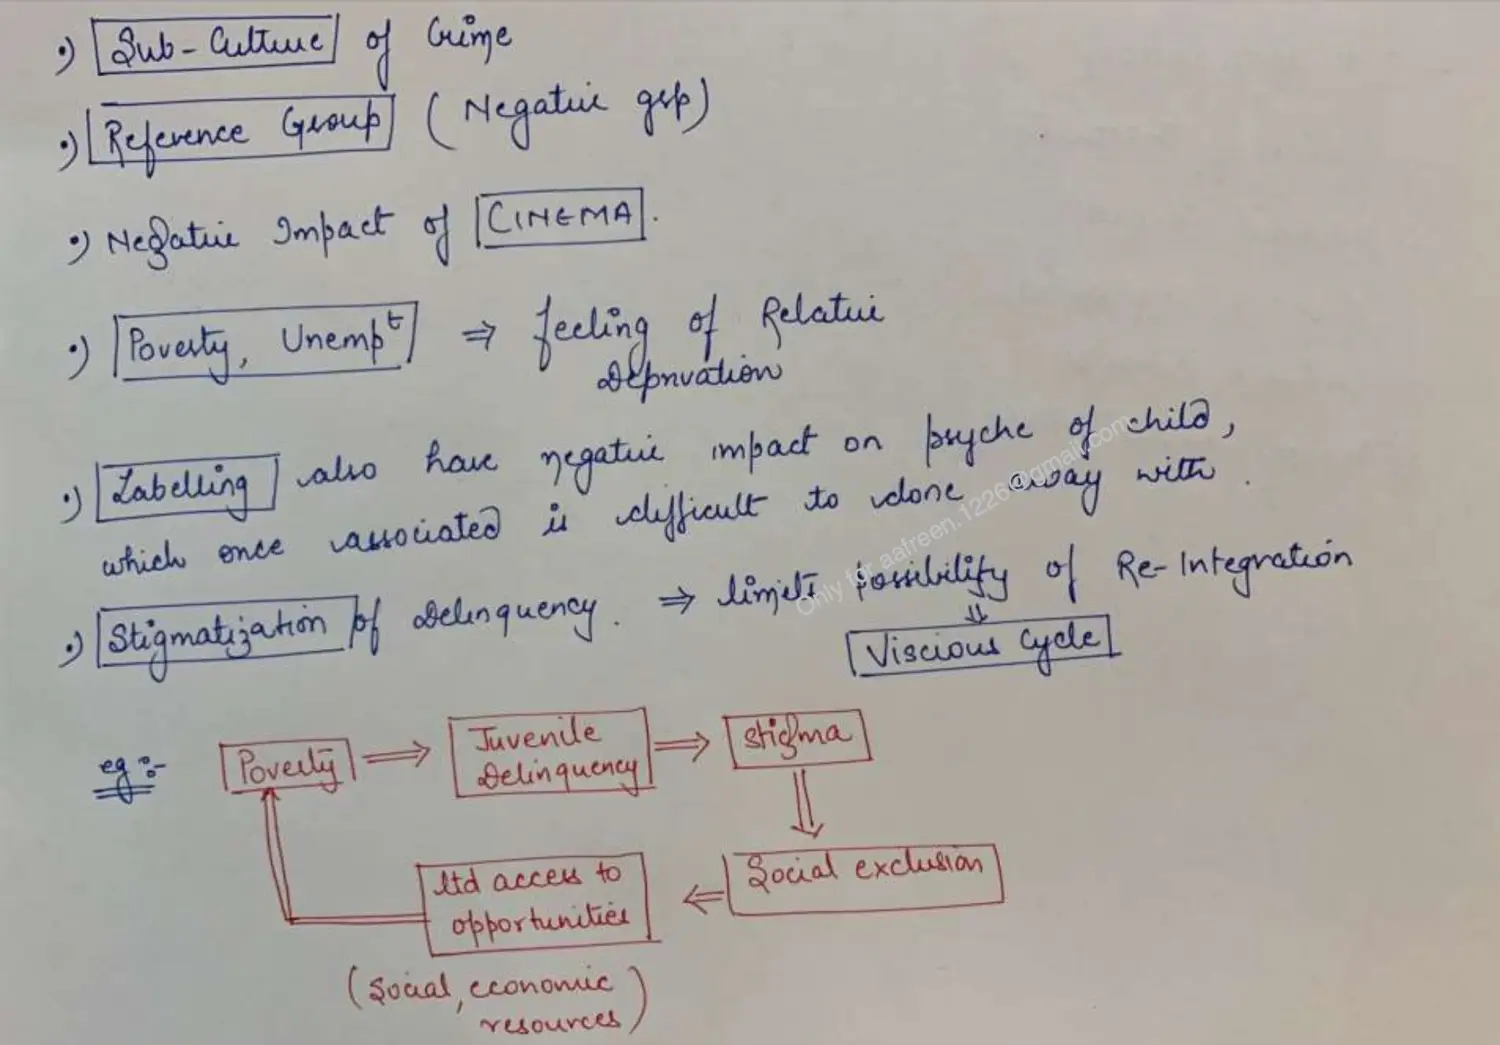 •) Sub-Culture of Crime
•) Reference Group (Negative grp)
•) Negative Impact of CINEMA.
•) Poverty, Unempt ⇒ feeling of Relative
Deprivation
•) Labelling also have negative impact on psyche of child,
which once associated is difficult to done away with.
•) Stigmatization of Delinquency. ⇒ limits possibility of Re-Integration
⇓
Viscious Cycle
eg:- Poverty ⇒ Juvenile Delinquency ⇒ Stigma
⇓
Social exclusion
⇐
ltd access to
opportunities
(Social, economic
resources)
Only for aafreen.1226@gmail.com